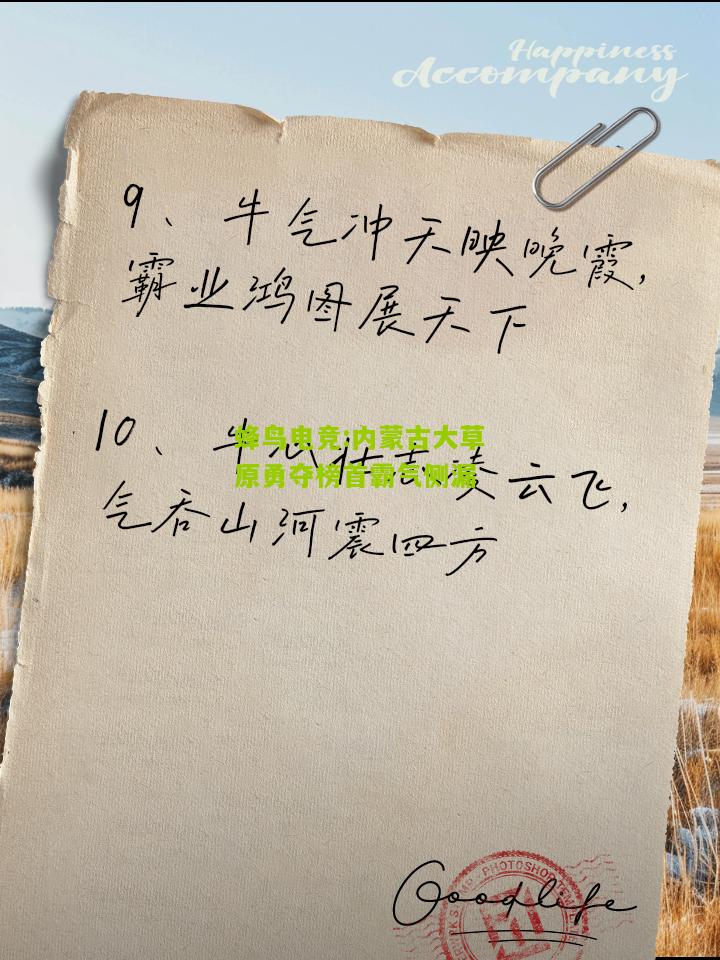 Happiness
Accompany
9、牛气冲天映晚霞,
霸业鸿图展天下
蜂鸟电竞:内蒙古大草
原勇夺榜首霸气侧漏
10、牛心壮志凌云飞,
气吞山河震四方
PHOTOSHOP
Goodlife